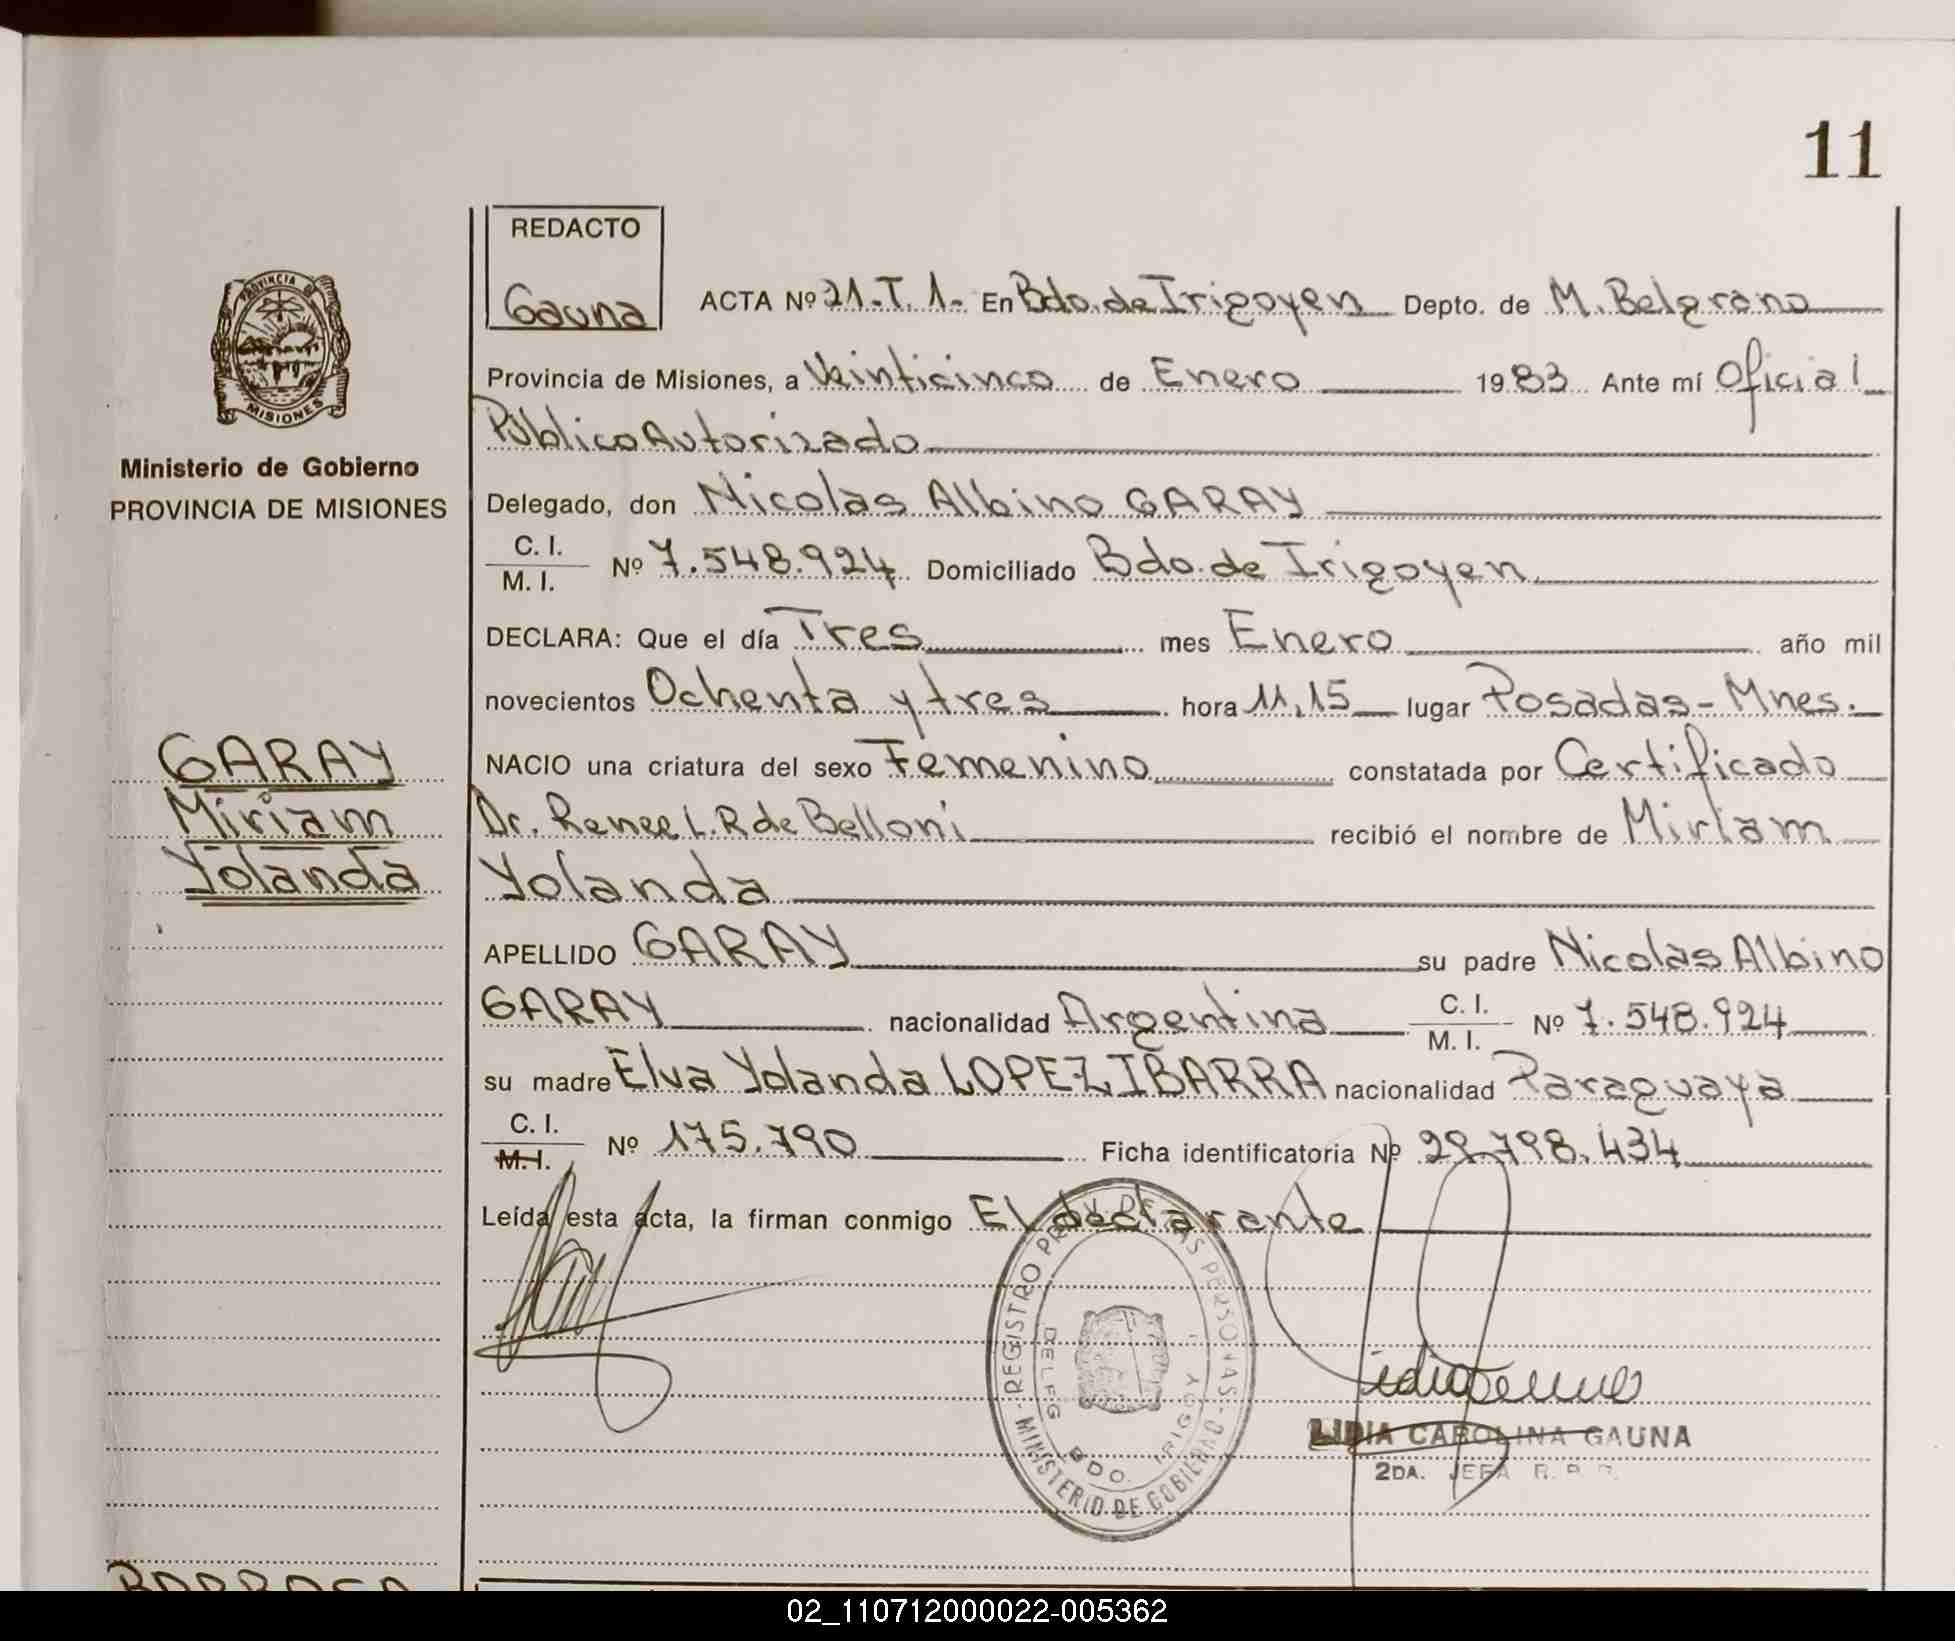 11
REDACTO
Gauna
ACTA Nº 21.T. 1.- En Bdo. de Irigoyen Depto. de M. Belgrano
Provincia de Misiones, a Veinticinco de Enero 1983 Ante mí Oficial
Público Autorizado
Delegado, don Nicolás Albino GARAY
C. I.
M. I. Nº 7.548.924 Domiciliado Bdo. de Irigoyen
DECLARA: Que el día Tres mes Enero año mil
novecientos Ochenta y tres hora 11,15 lugar Posadas - Mnes.
NACIO una criatura del sexo Femenino constatada por Certificado
Dr. Renee L. R de Belloni recibió el nombre de Miriam
Yolanda
APELLIDO GARAY su padre Nicolás Albino
GARAY nacionalidad Argentina C. I.
M. I. Nº 7.548.924
su madre Elva Yolanda LOPEZ IBARRA nacionalidad Paraguaya
C. I.
M. I. Nº 175.790 Ficha identificatoria Nº 29.798.434
Leída esta acta, la firman conmigo El declarante
PROVINCIA DE
MISIONES
Ministerio de Gobierno
PROVINCIA DE MISIONES
GARAY
Miriam
Yolanda
REGISTRO PROV. DE LAS PERSONAS
MINISTERIO DE GOBIERNO
DELEG
BDO. IRIGOY
LIDIA CAROLINA GAUNA
2DA. JEFA R. P.
02_110712000022-005362